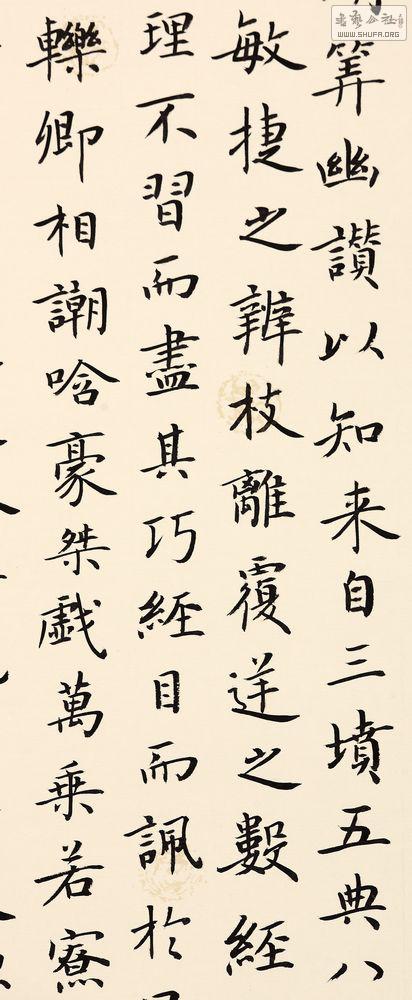 筭幽讚以知来自三墳五典八
敏捷之辨枝離覆逆之數經
理不習而盡其巧經目而諷於
轢卿相謿唅豪桀戯萬乗若寮
書藝公社
WWW.SHUFA.ORG